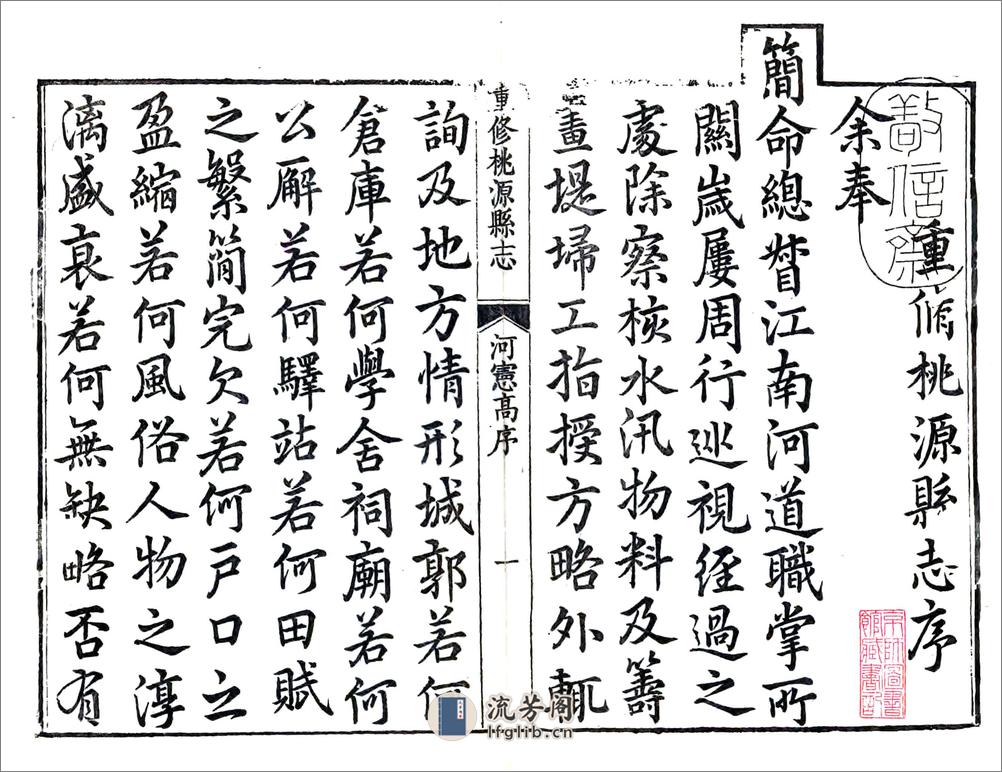 重修桃源縣志序
余奉
簡命總督江南河道職掌所
關歲屢周行巡視經過之
處除察核水汛物料及籌
畫堤埽工指授方略外輒
重修桃源縣志
河憲高序
一
詢及地方情形城郭若何
倉庫若何學舍祠廟若何
公廨若何驛站若何田賦
之繁簡完欠若何戶口之
盈縮若何風俗人物之淳
漓盛衰若何無缺略否有
流芳阁
lfglib.cn